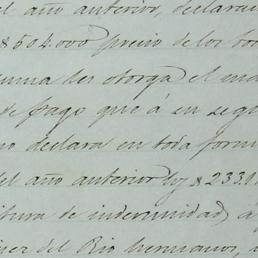 el año anterior, declara
$504.000 precio de los bo
suma les otorga el ma
de pago que á su segu
no declara en toda form
del año anterior los $233.9
itura de indemnidad, á
iner del Rio hermanos,